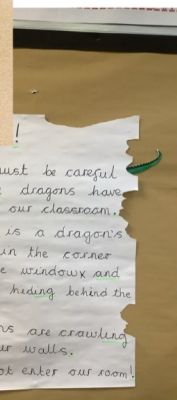 !
must be careful
dragons have
our classroom.
is a dragon's
in the corner
windowx and
hiding behind the
are crawling
walls.
enter our room!